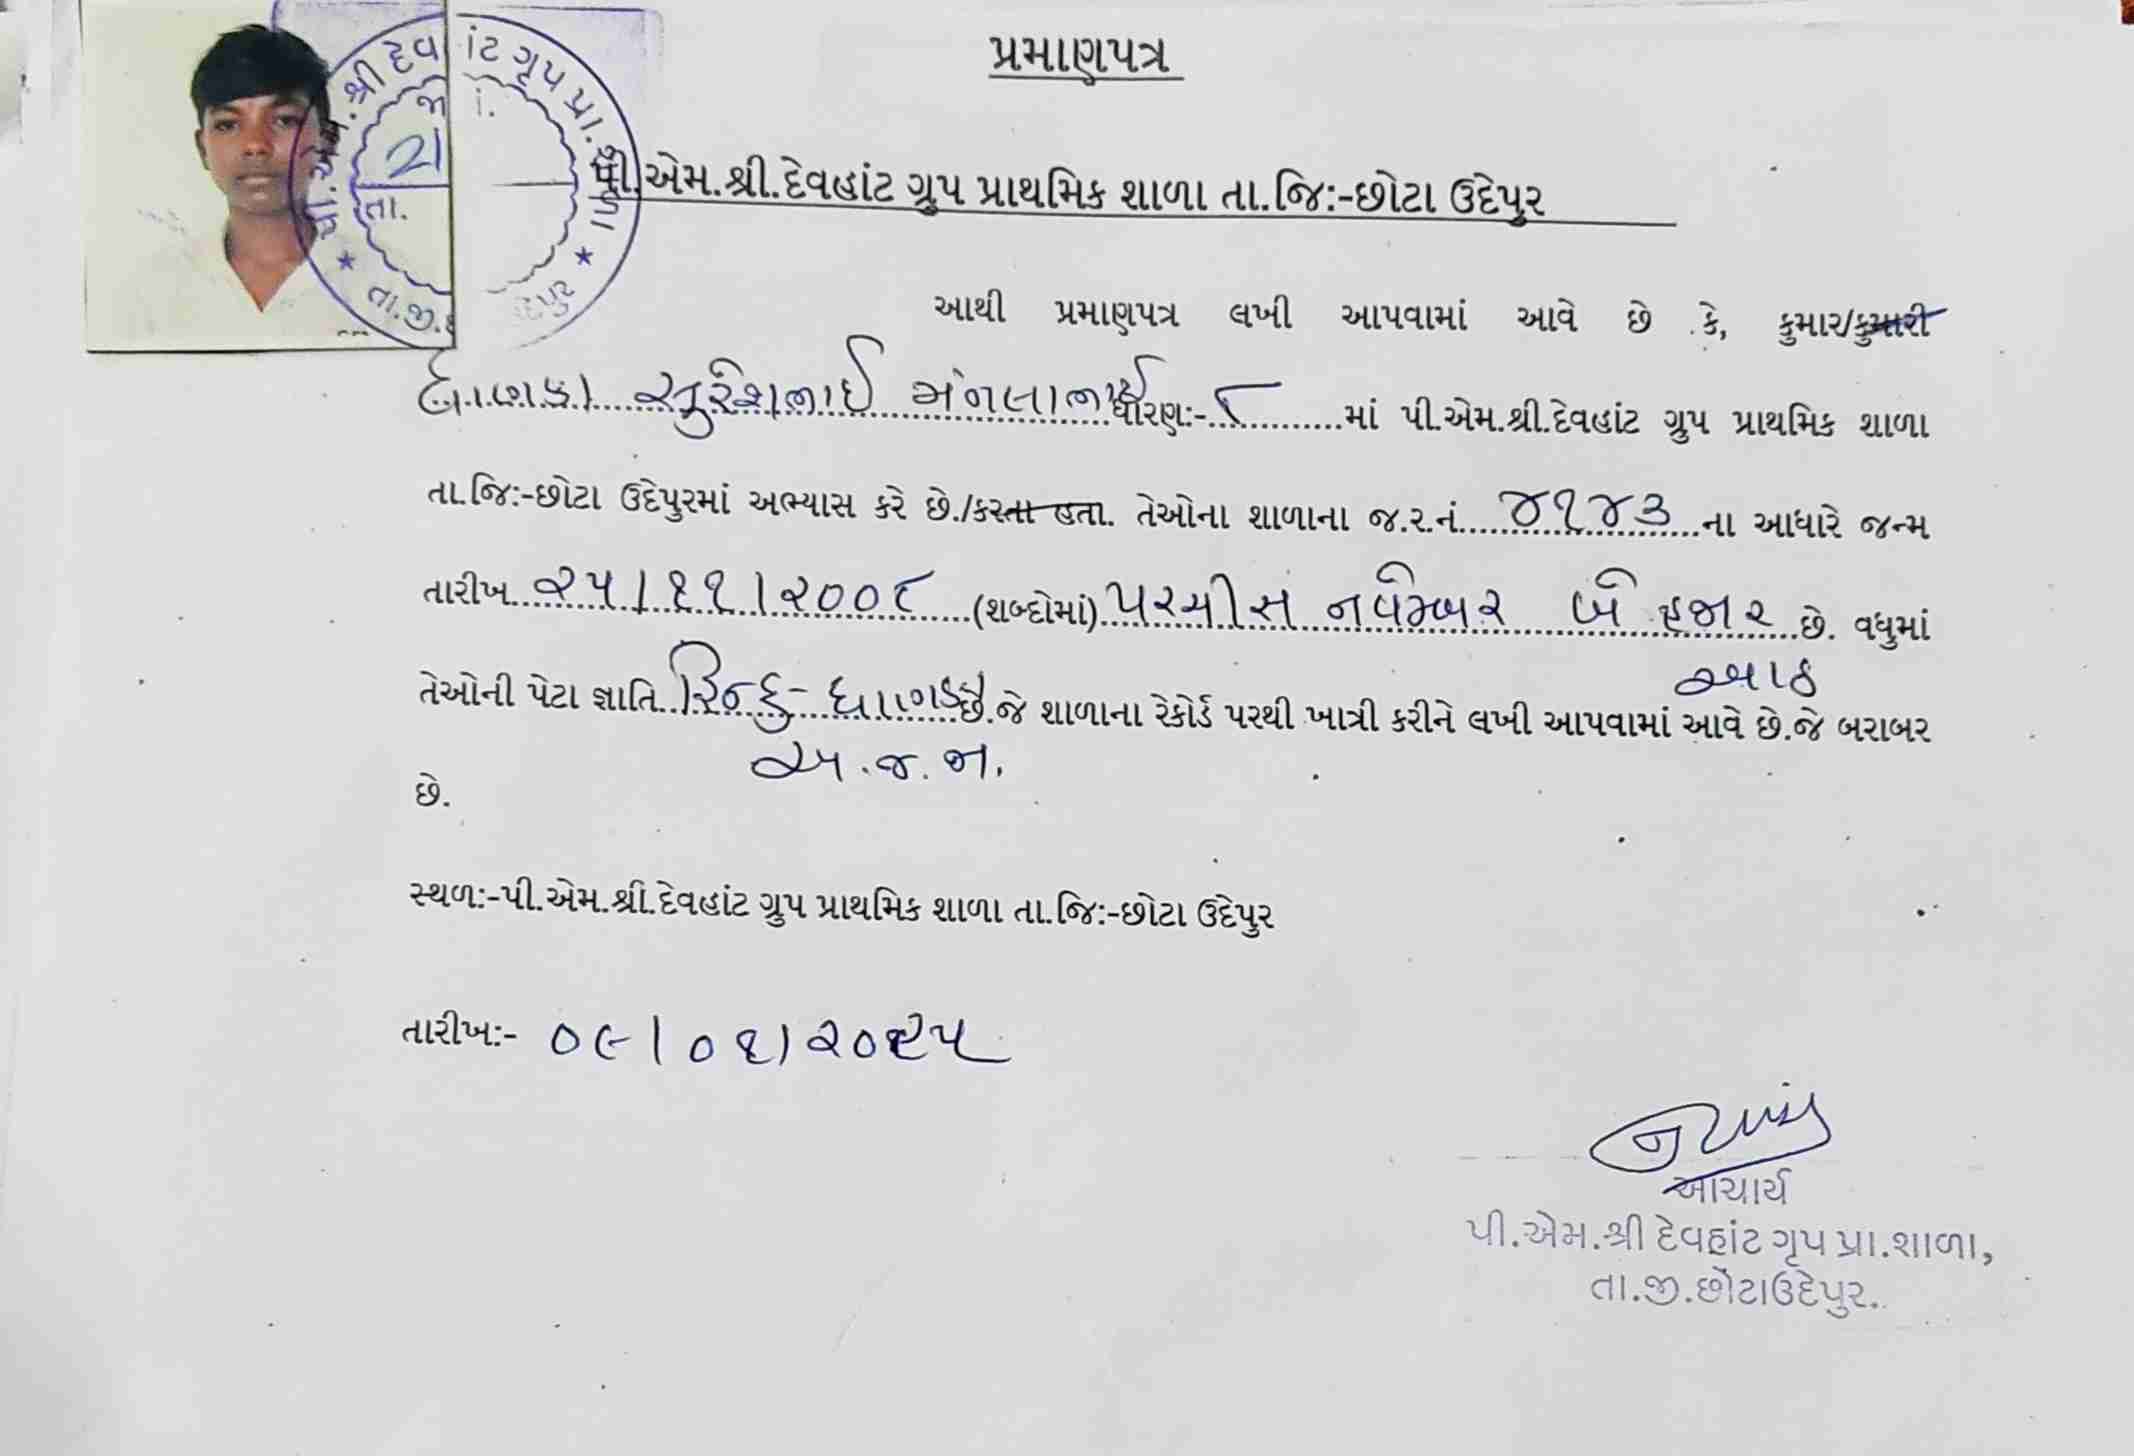 પ્રમાણપત્ર
પી.એમ.શ્રી.દેવહાંટ ગ્રુપ પ્રાથમિક શાળા તા.જિ:-છોટા ઉદેપુર
આથી પ્રમાણપત્ર લખી આપવામાં આવે છે કે, કુમાર/કુમારી
ધાણકા સુરેશભાઈ ધોરણ:- ૮ માં પી.એમ.શ્રી.દેવહાંટ ગ્રુપ પ્રાથમિક શાળા
તા.જિ:-છોટા ઉદેપુરમાં અભ્યાસ કરે છે./કરતા હતા. તેઓના શાળાના જ.ર.નં. ૪૧૪૩ ના આધારે જન્મ
તારીખ ૨૫/૧૧/૨૦૦૮ (શબ્દોમાં) પચ્ચીસ નવેમ્બર બે હજાર છે. વધુમાં
આઠ
તેઓની પેટા જ્ઞાતિ હિન્દુ- ધાણકા છે.જે શાળાના રેકોર્ડ પરથી ખાત્રી કરીને લખી આપવામાં આવે છે.જે બરાબર
અ.જ.જા.
છે.
સ્થળ:-પી.એમ.શ્રી.દેવહાંટ ગ્રુપ પ્રાથમિક શાળા તા.જિ:-છોટા ઉદેપુર
તારીખ:- ૦૯/૦૧/૨૦૨૫
આચાર્ય
પી.એમ.શ્રી દેવહાંટ ગૃપ પ્રા.શાળા,
તા.જી.છોટાઉદેપુર.